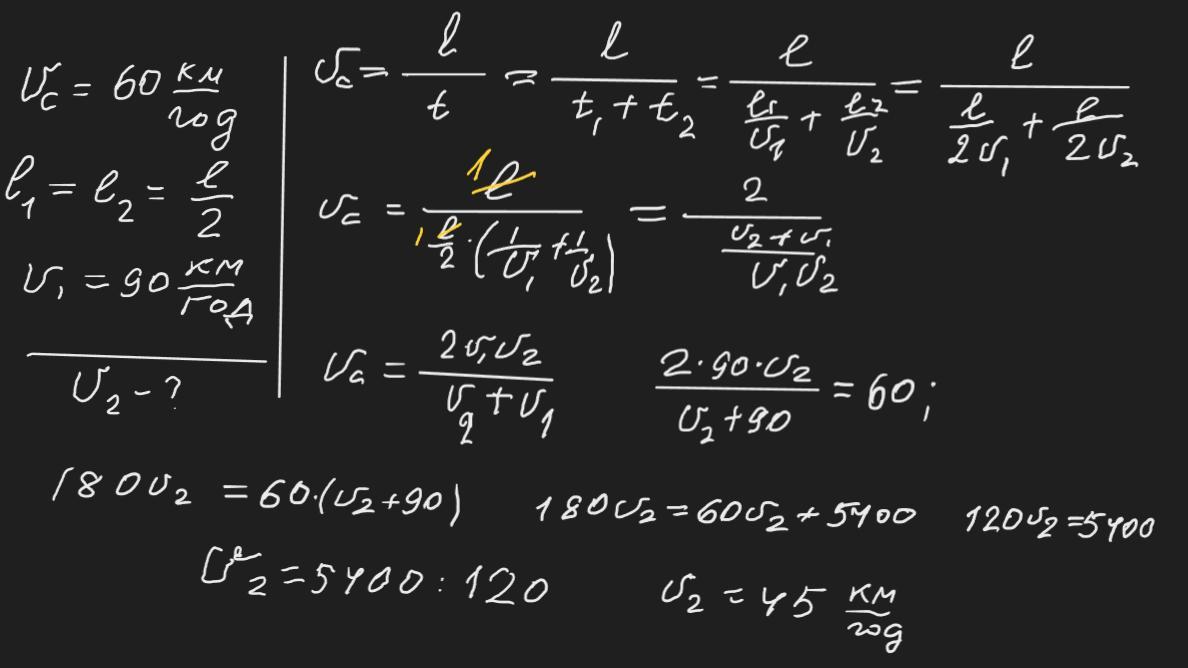 υc = 60 км/год
l₁ = l₂ = l/2
υ₁ = 90 км/год
υ₂ - ?
υc = l/t = l/(t₁ + t₂) = l/(l₁/υ₁ + l₂/υ₂) = l/(l/2υ₁ + l/2υ₂)
υc = 1 l/(1 l/2 · (1/υ₁ + 1/υ₂)) = 2/((υ₂ + υ₁)/υ₁υ₂)
υc = 2υ₁υ₂/(υ₂ + υ₁) (2·90·υ₂)/(υ₂ + 90) = 60;
180υ₂ = 60·(υ₂+90) 180υ₂ = 60υ₂ + 5400 120υ₂ = 5400
υ₂ = 5400 : 120 υ₂ = 45 км/год